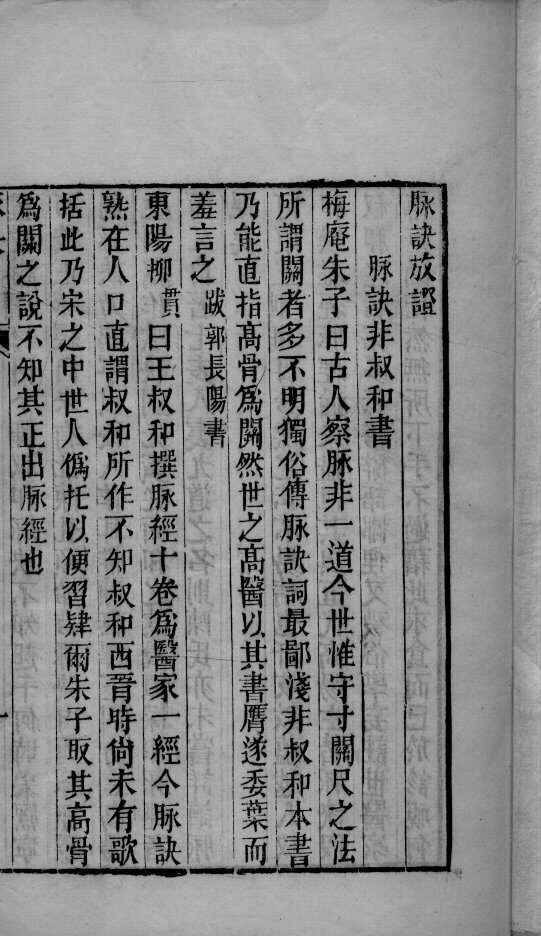 脉訣放證
脉訣非叔和書
梅庵朱子曰古人察脉非一道今世惟守寸關尺之法
所謂關者多不明獨俗傳脉訣詞最鄙淺非叔和本書
乃能直指高骨爲關然世之高醫以其書贋遂委葉而
羞言之 跋郭長陽書
東陽柳貫曰王叔和撰脉經十卷爲醫家一經今脉訣
熟在人口直謂叔和所作不知叔和西晉時尙未有歌
括此乃宋之中世人僞托以便習肄爾朱子取其高骨
爲關之說不知其正出脉經也